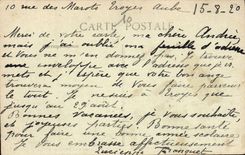 10 rue des Marots Troyes Aube 15-8-20
CARTE POSTALE
Merci de votre carte, ma chère Andrée
mais j'ai oublié ma feuille d'adresse
et vous m'en donnez plus. Je trouve
une enveloppe avec l'adresse je
mets et j'espère que votre bon ange
trouvera moyen de vous faire parvenir
le tout. Je reste à Troyes que
jusqu'au 23 août.
Bonnes vacances, je vous souhaite,
et joyeuses parties! Bonne santé
pour faire une bonne année scolaire.
Je vous embrasse affectueusement
Lucienne